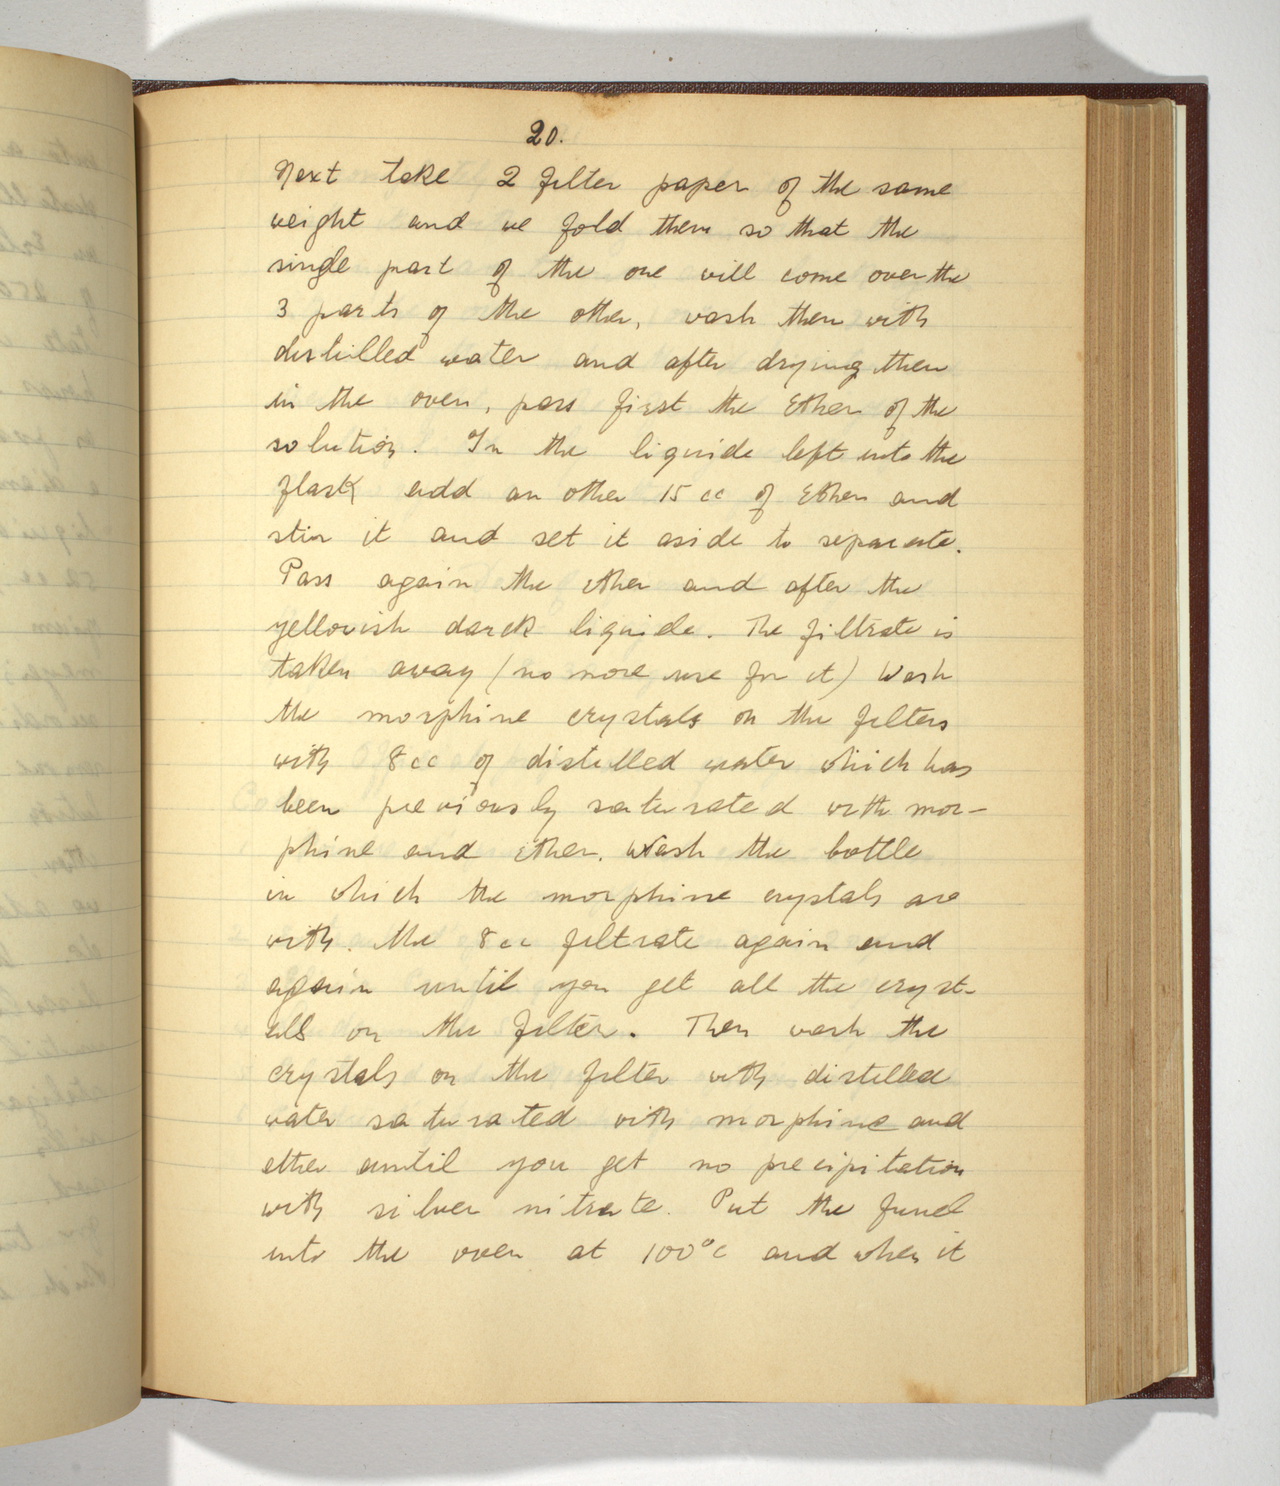 20.
Next take 2 filter paper of the same
weight and we fold them so that the
single part of the one will come over the
3 parts of the other, wash them with
distilled water and after drying them
in the oven, pass first the Ether of the
solution. In the liquide left into the
flask add an other 15 cc of Ether and
stir it and set it aside to separate.
Pass again the ether and after the
yellowish darck liquide. The filtrate is
taken away (no more use for it) Wash
the morphine crystals on the filters
with 8cc of distilled water which has
been previously saturated with mor-
phine and ether. Wash the bottle
in which the morphine crystals are
with. the 8cc filtrate again and
again until you get all the cryst-
alls on the filter. Then wash the
crystals on the filter with distilled
water saturated with morphine and
ether until you get no precipitation
with silver nitrate. Put the funel
into the oven at 100°c and when it